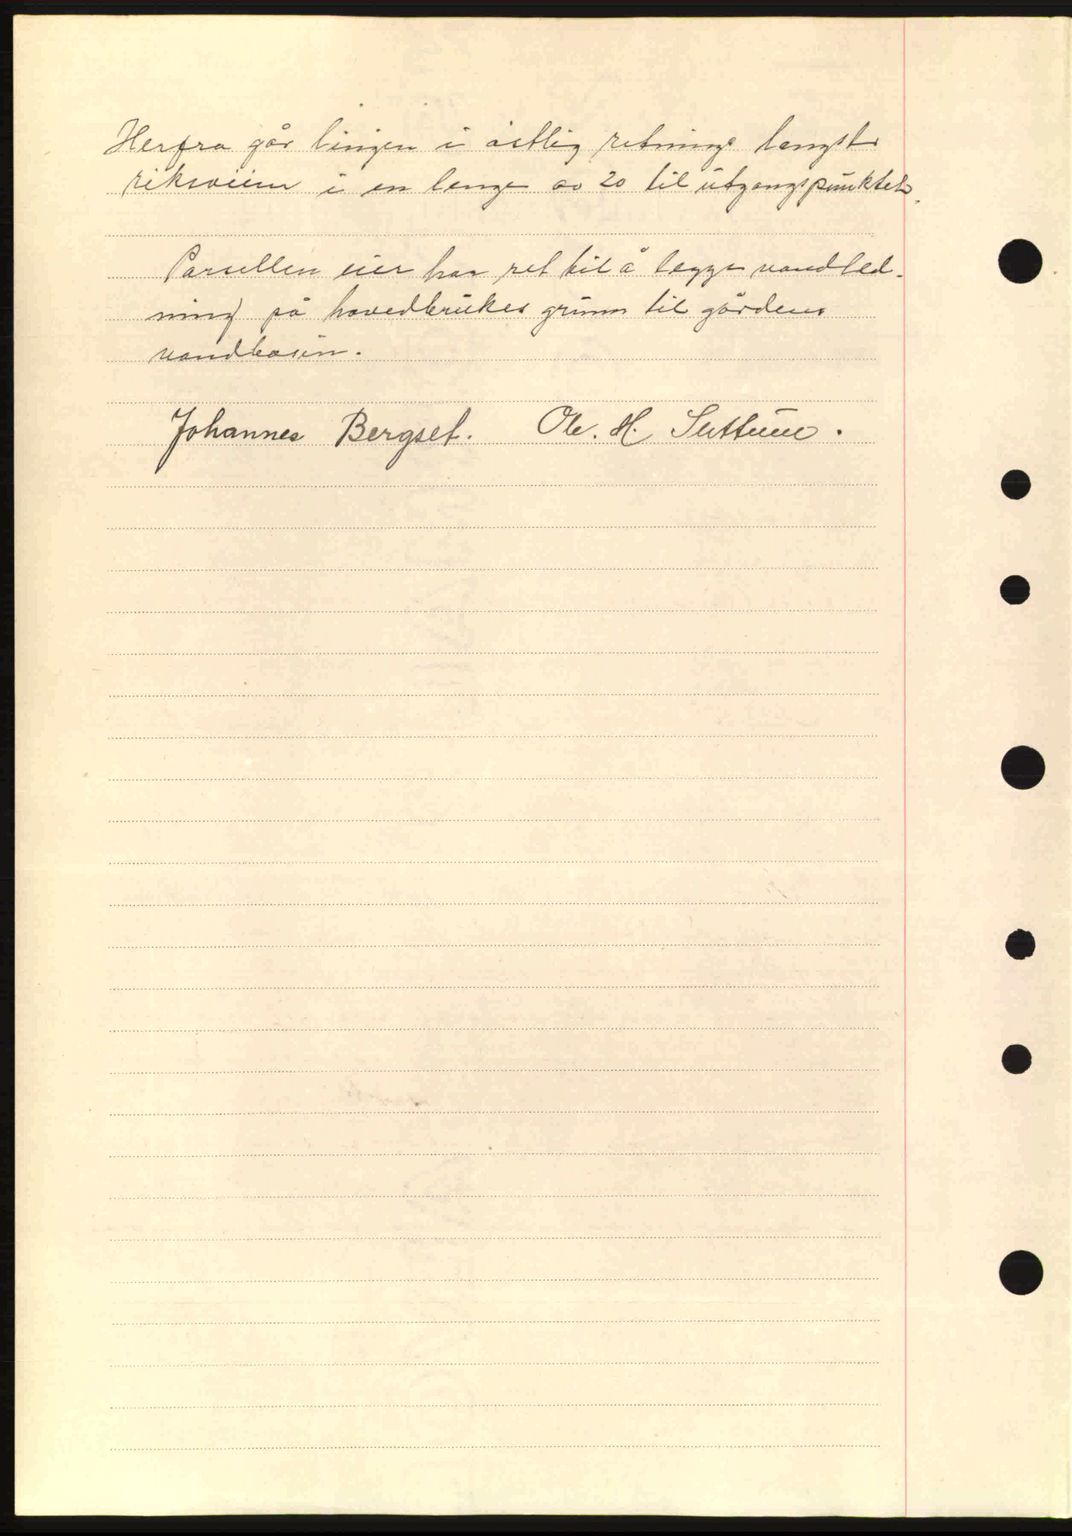 Herfra går linjen i østlig retning langst
riksveien i en lenge av 20 til utgangspunktet.
Parsellen eier har ret til å legge vandled-
ning på hovedbrukes grunn til gårdens
vandbasin.
Johannes Bergset. Ole. H.